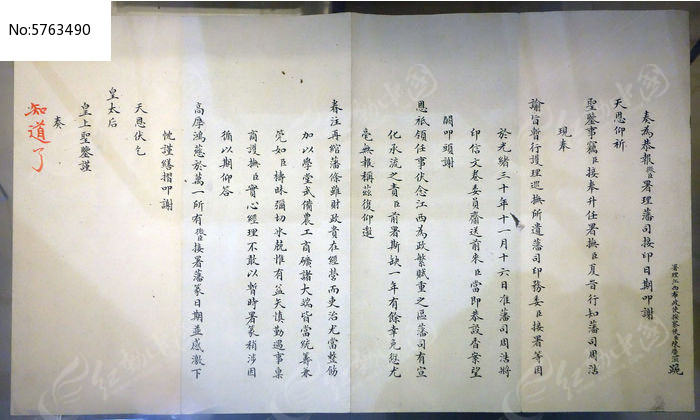 No:5763490
署理江西布政使按察使臣陳慶滋跪
奏為恭報微臣署理藩司接印日期叩謝
天恩仰祈
聖鑒事竊臣接奉升任署撫臣夏晉行知藩司周浩
現奉
諭旨暫行護理巡撫所遺藩司印務委臣接署等因
於光緒三十年十一月十六日准藩司周浩將
印信文卷委員齎送前來臣當即恭設香案望
闕叩頭謝
恩祗領任事伏念江西為政繁賦重之區藩司有宣
化承流之責臣前署斯缺一年有餘幸免愆尤
毫無報稱茲復仰邀
眷注再綰藩條雖財政貴在經營而吏治尤當整飭
加以學堂武備農工商礦諸大端皆當統籌兼
顧如臣檮昧彌切冰兢惟有益矢慎勤遇事稟
商護撫臣實心經理不敢以暫時署篆稍涉因
循以期仰答
高厚鴻慈於萬一所有微臣接署藩篆日期並感激下
忱謹繕摺叩謝
天恩伏乞
皇太后
皇上聖鑒謹
奏
知道了
红动中国